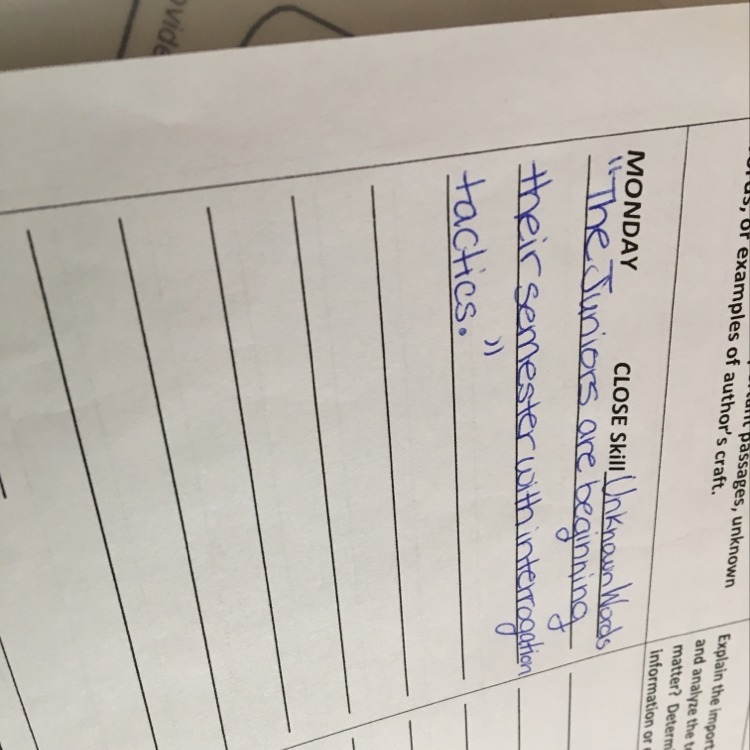 or examples of author's craft.
passages, unknown
MONDAY CLOSE Skill Unknown Words
"The Juniors are beginning
their semester with interrogation
tactics."
Explain the import
and analyze the t
matter? Determ
information or
ovide